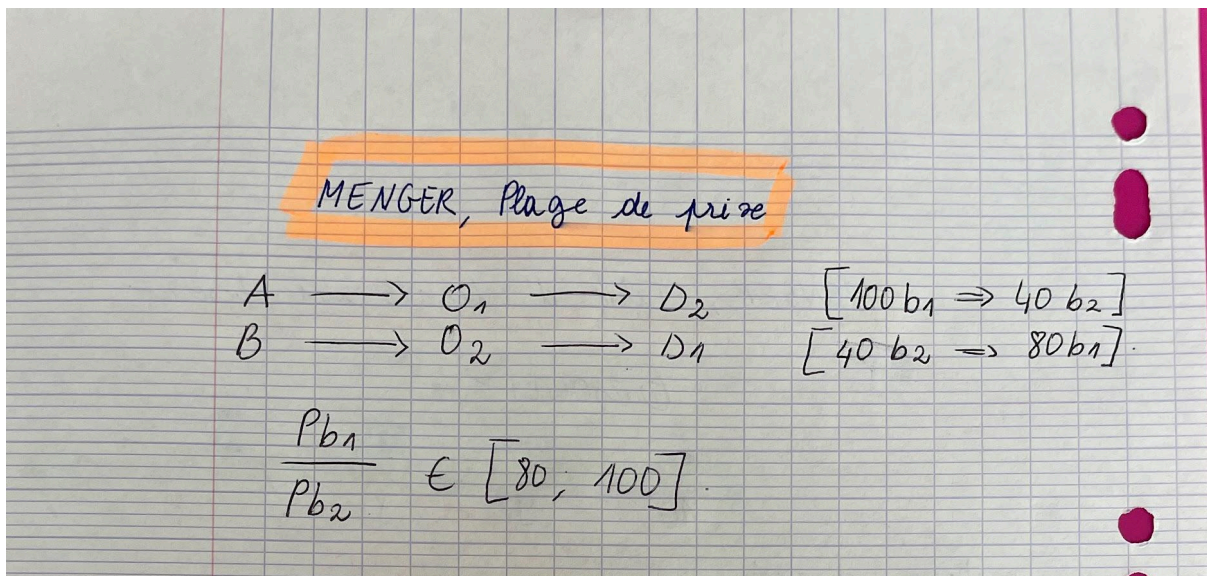 MENGER, Plage de prix
A → O₁ → D₂ [100b₁ ⇒ 40 b₂]
B → O₂ → D₁ [40 b₂ ⇒ 80b₁].
Pb₁
Pb₂
€ [80, 100].